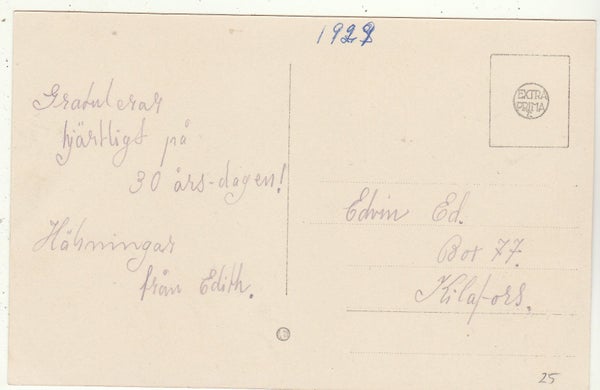 Gratulerar
hjärtligt på
30 års-dagen!
Hälsningar
från Edith.
EXTRA
PRIMA
Edvin Ed.
Box 77.
Kilafors.
25